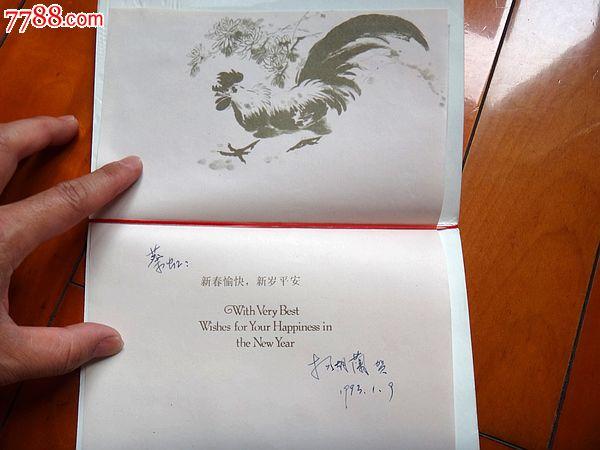 7788.com
蔡虹:
新春愉快,新岁平安
With Very Best
Wishes for Your Happiness in
the New Year
胡兰 贺
1993.1.9